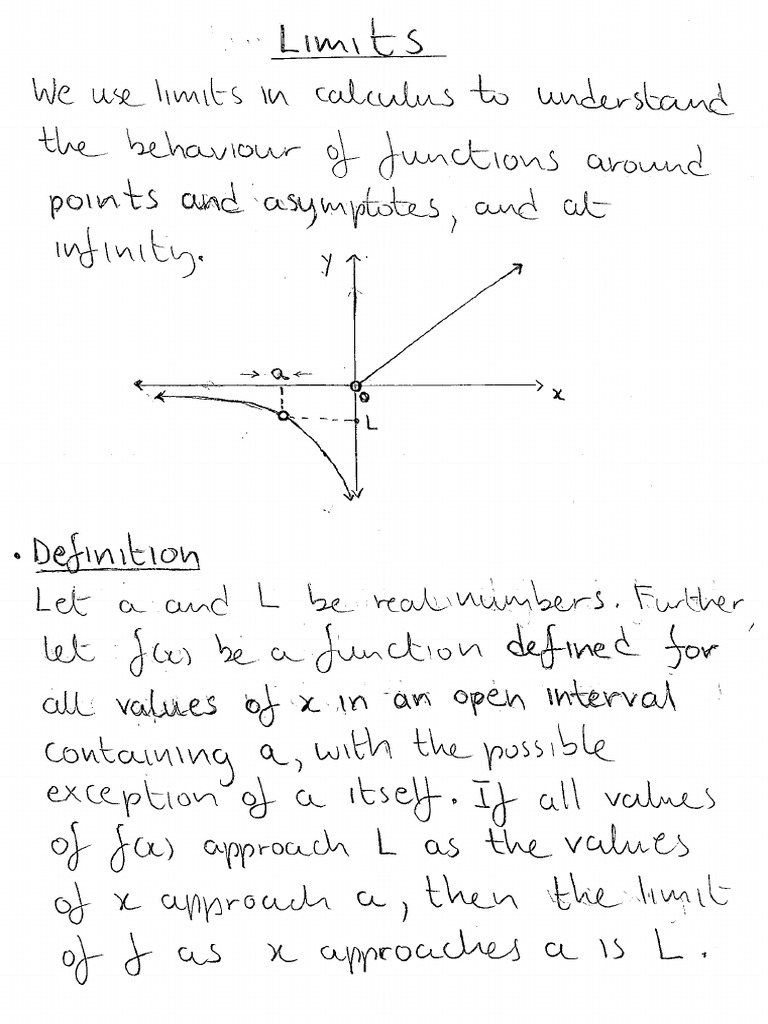 Limits
We use limits in calculus to understand
the behaviour of functions around
points and asymptotes, and at
infinity.
y
→ a ←
0
x
L
• Definition
Let a and L be real numbers. Further,
let f(x) be a function defined for
all values of x in an open interval
containing a, with the possible
exception of a itself. If all values
of f(x) approach L as the values
of x approach a, then the limit
of f as x approaches a is L.